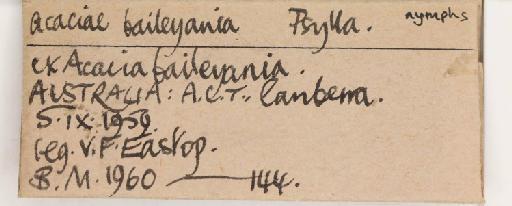 Acaciae baileyania Psylla. nymphs
ex Acacia baileyania.
AUSTRALIA: A.C.T., Canberra.
5.ix.1959.
leg. V.F. Eastop.
B.M. 1960 — 144.